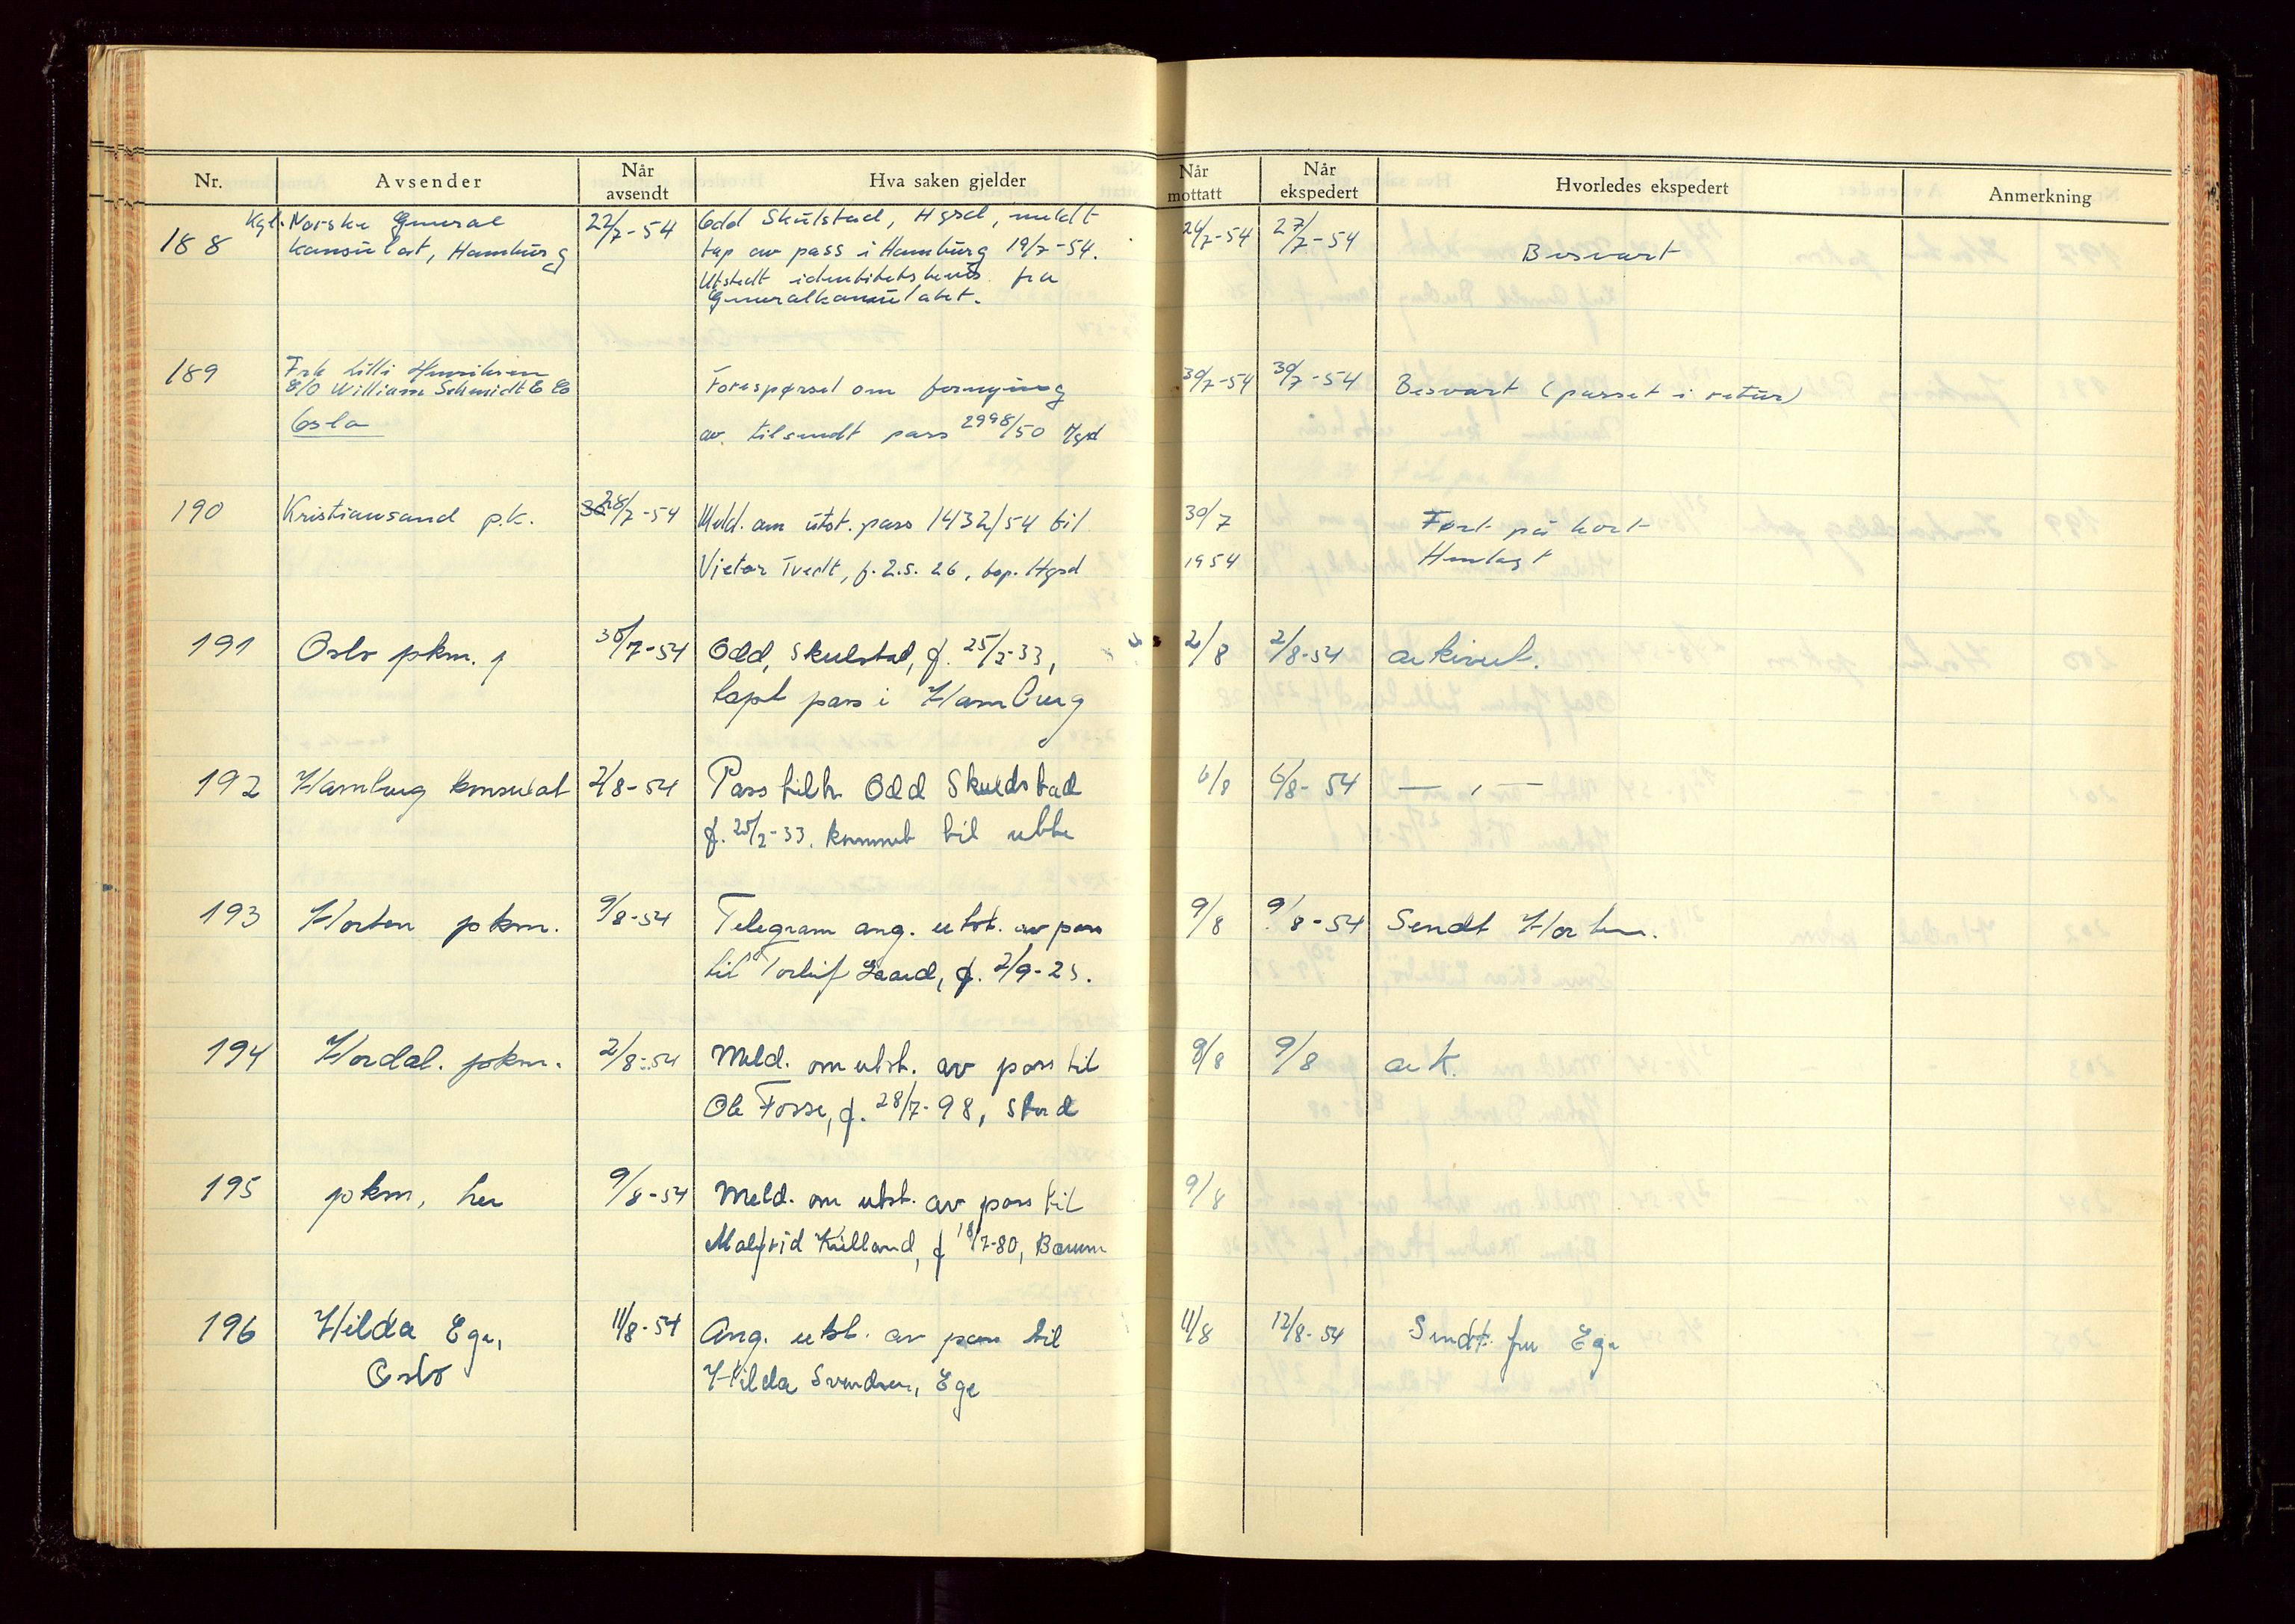 Nr.
Avsender
Når avsendt
Hva saken gjelder
Når mottatt
Når ekspedert
Hvorledes ekspedert
Anmerkning
188
Kgl. Norske General
konsulat, Hamburg
22/7-54
Odd Skulstad, Hgsd, meldt
tap av pass i Hamburg 19/7-54.
Utstedt identitetsbevis fra
Generalkonsulatet.
24/7-54
27/7-54
Besvart
189
Frk Lilli Henriksen
C/O William Schmidt & Co
Oslo
Forespørsel om fornying
av tilsendt pass 2998/50 Hgsd
30/7-54
30/7-54
Besvart (passet i retur)
190
Kristiansand p.k.
28/7-54
Meld. om utst. pass 1432/54 til
Victor Tvedt, f. 2.5.26, bop. Hgsd
30/7
1954
Ført på kort
Henlagt
191
Oslo pkm.
30/7-54
Odd Skulstad, f. 25/2-33,
tapt pass i Hamburg
2/8
2/8-54
arkivert.
192
Hamburg konsulat
2/8-54
Pass tilh. Odd Skuldstad
f. 25/2-33. kommet til rette
6/8
6/8-54
— , —
193
Horten pkm.
9/8-54
Telegram ang. utst. av pass
til Torleif Gaard, f. 2/9-25.
9/8
9/8-54
Sendt Horten.
194
Hordal. pkm.
2/8-54
Meld. om utst. av pass til
Ole Fosse, f. 28/7-98, Stord
9/8
9/8
ark.
195
pkm, her
9/8-54
Meld. om utst. av pass til
Malfrid Kielland, f 18/7-80, Bærum
9/8
196
Hilda Ege,
Oslo
11/8-54
Ang. utst. av pass til
Hilda Svendsen, Ege
11/8
12/8-54
Sendt fru Ege